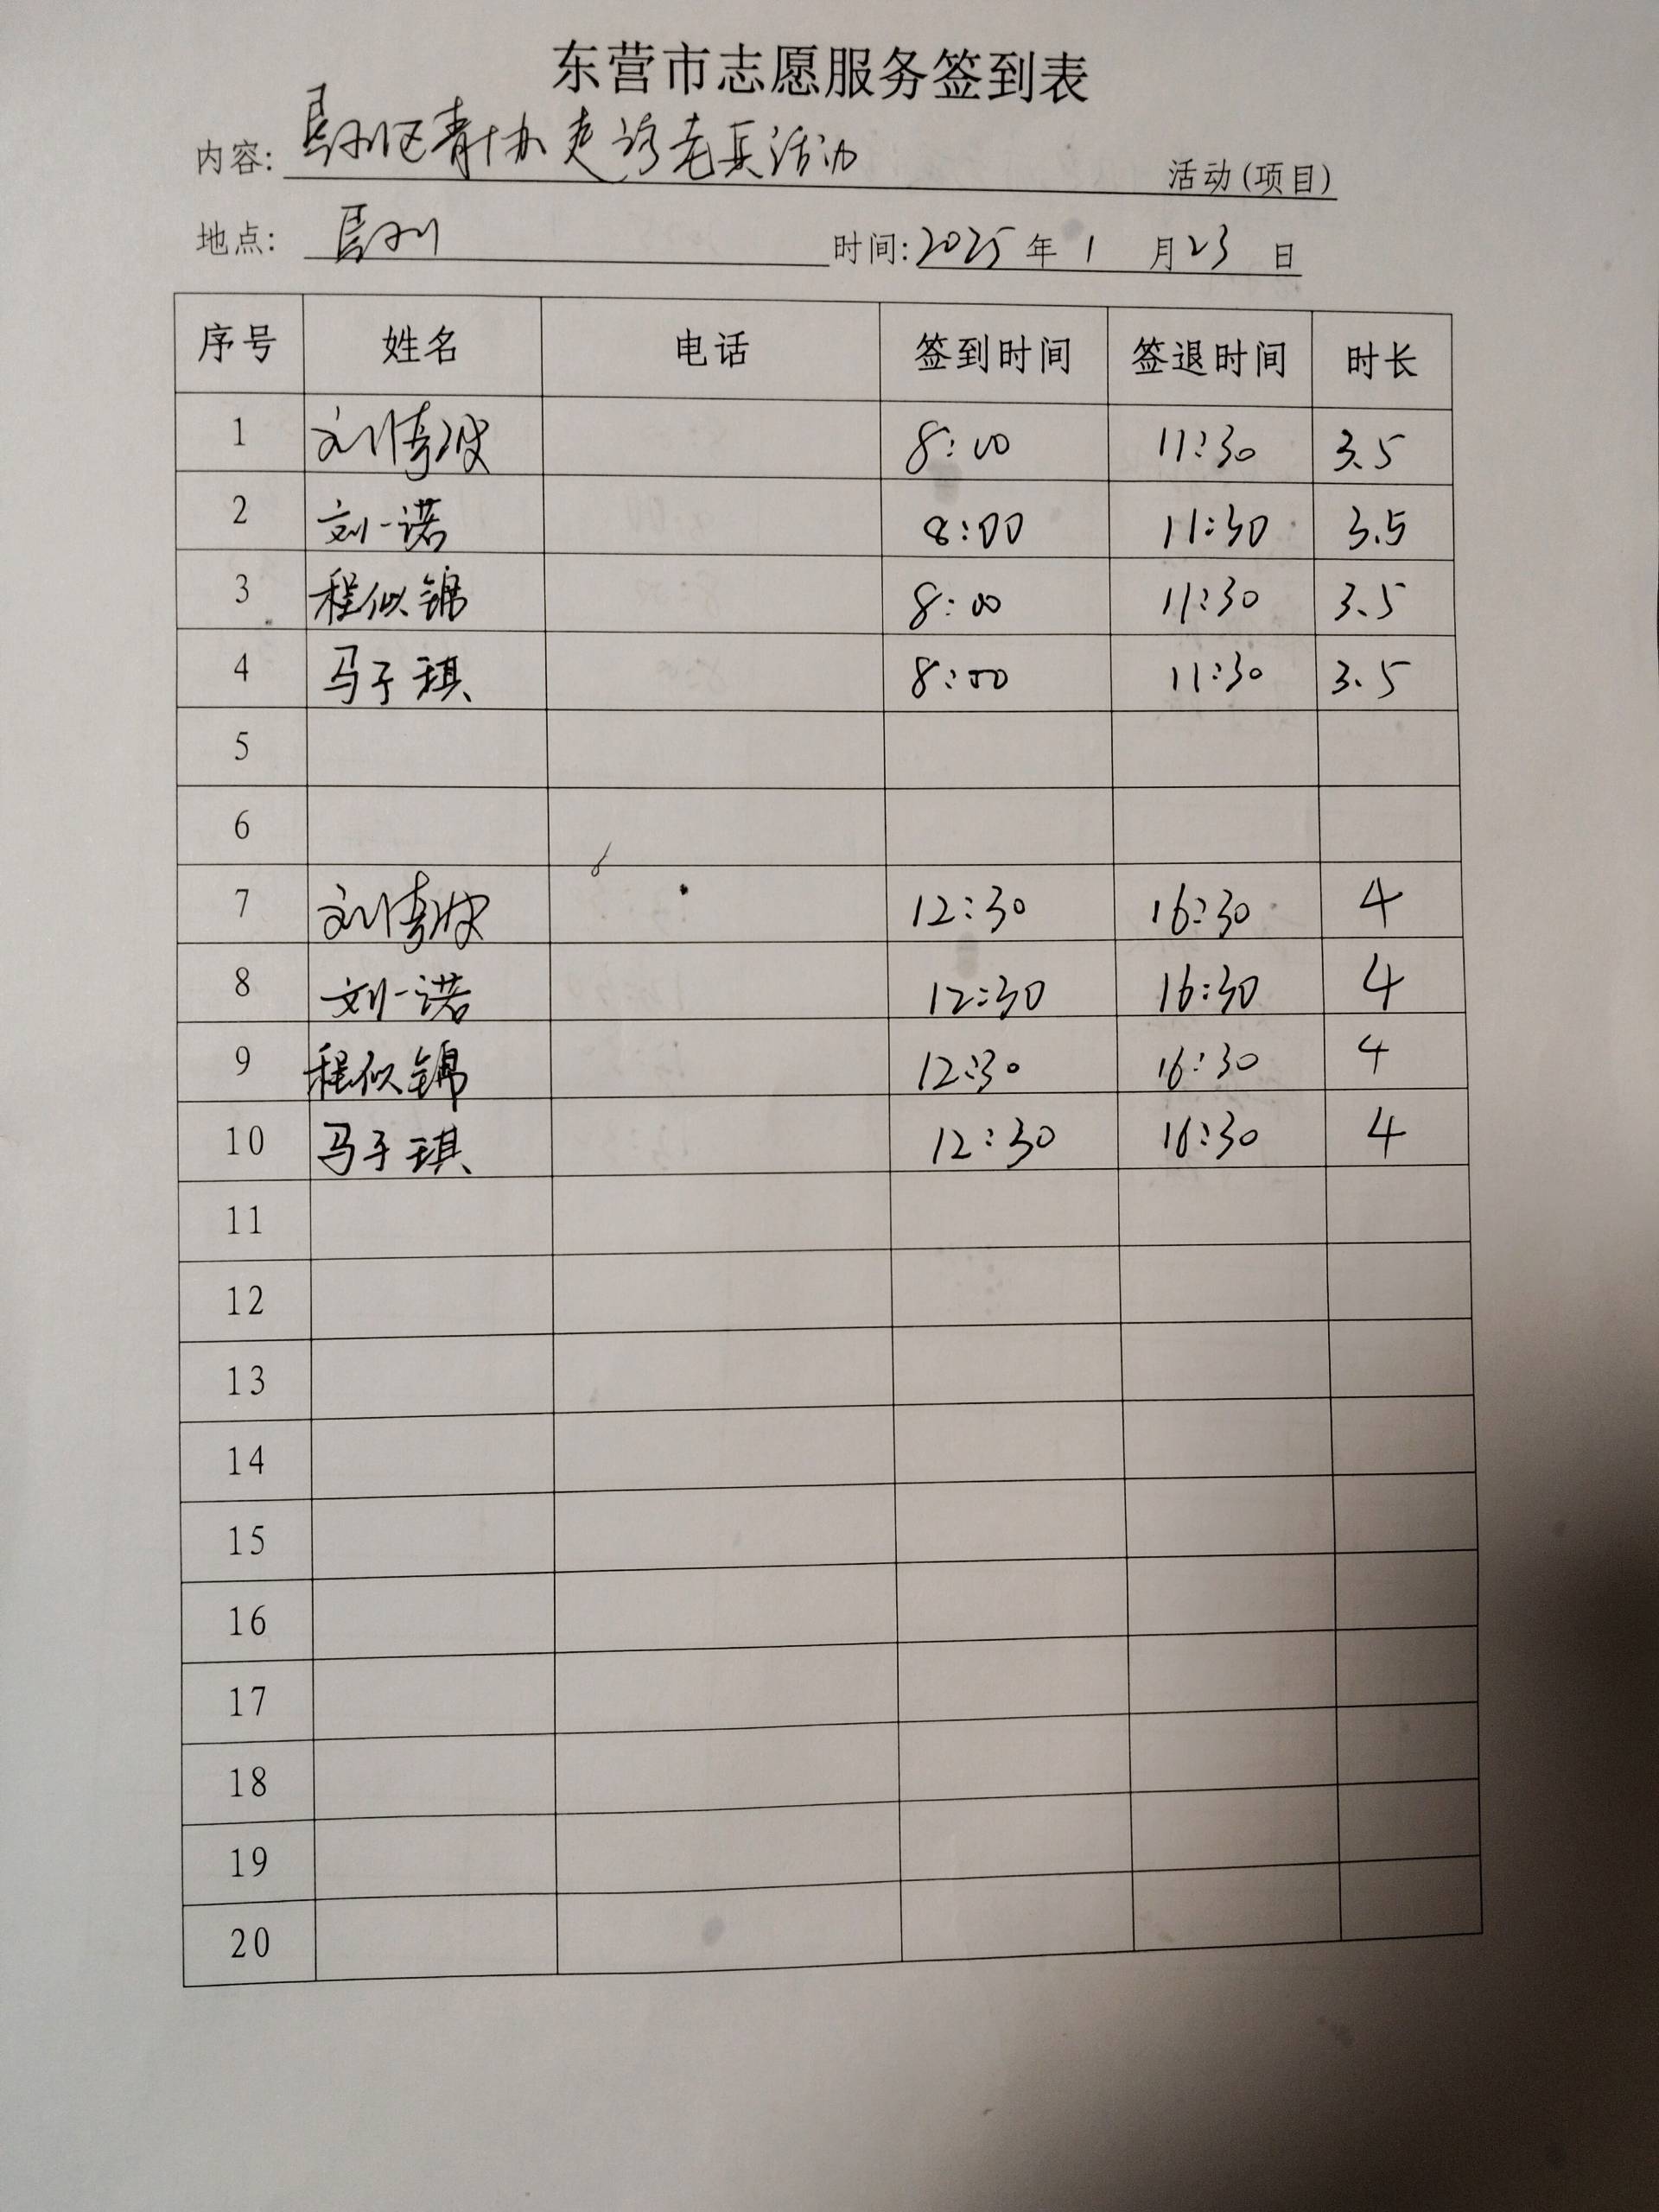 东营市志愿服务签到表
内容: 垦利区青协走访老兵活动 活动(项目)
地点: 垦利 时间: 2025 年 1 月 23 日
序号 姓名 电话 签到时间 签退时间 时长
1 刘 8:00 11:30 3.5
2 刘一诺 8:00 11:30 3.5
3 程似锦 8:00 11:30 3.5
4 马子琪 8:00 11:30 3.5
5
6
7 刘 12:30 16:30 4
8 刘一诺 12:30 16:30 4
9 程似锦 12:30 16:30 4
10 马子琪 12:30 16:30 4
11
12
13
14
15
16
17
18
19
20